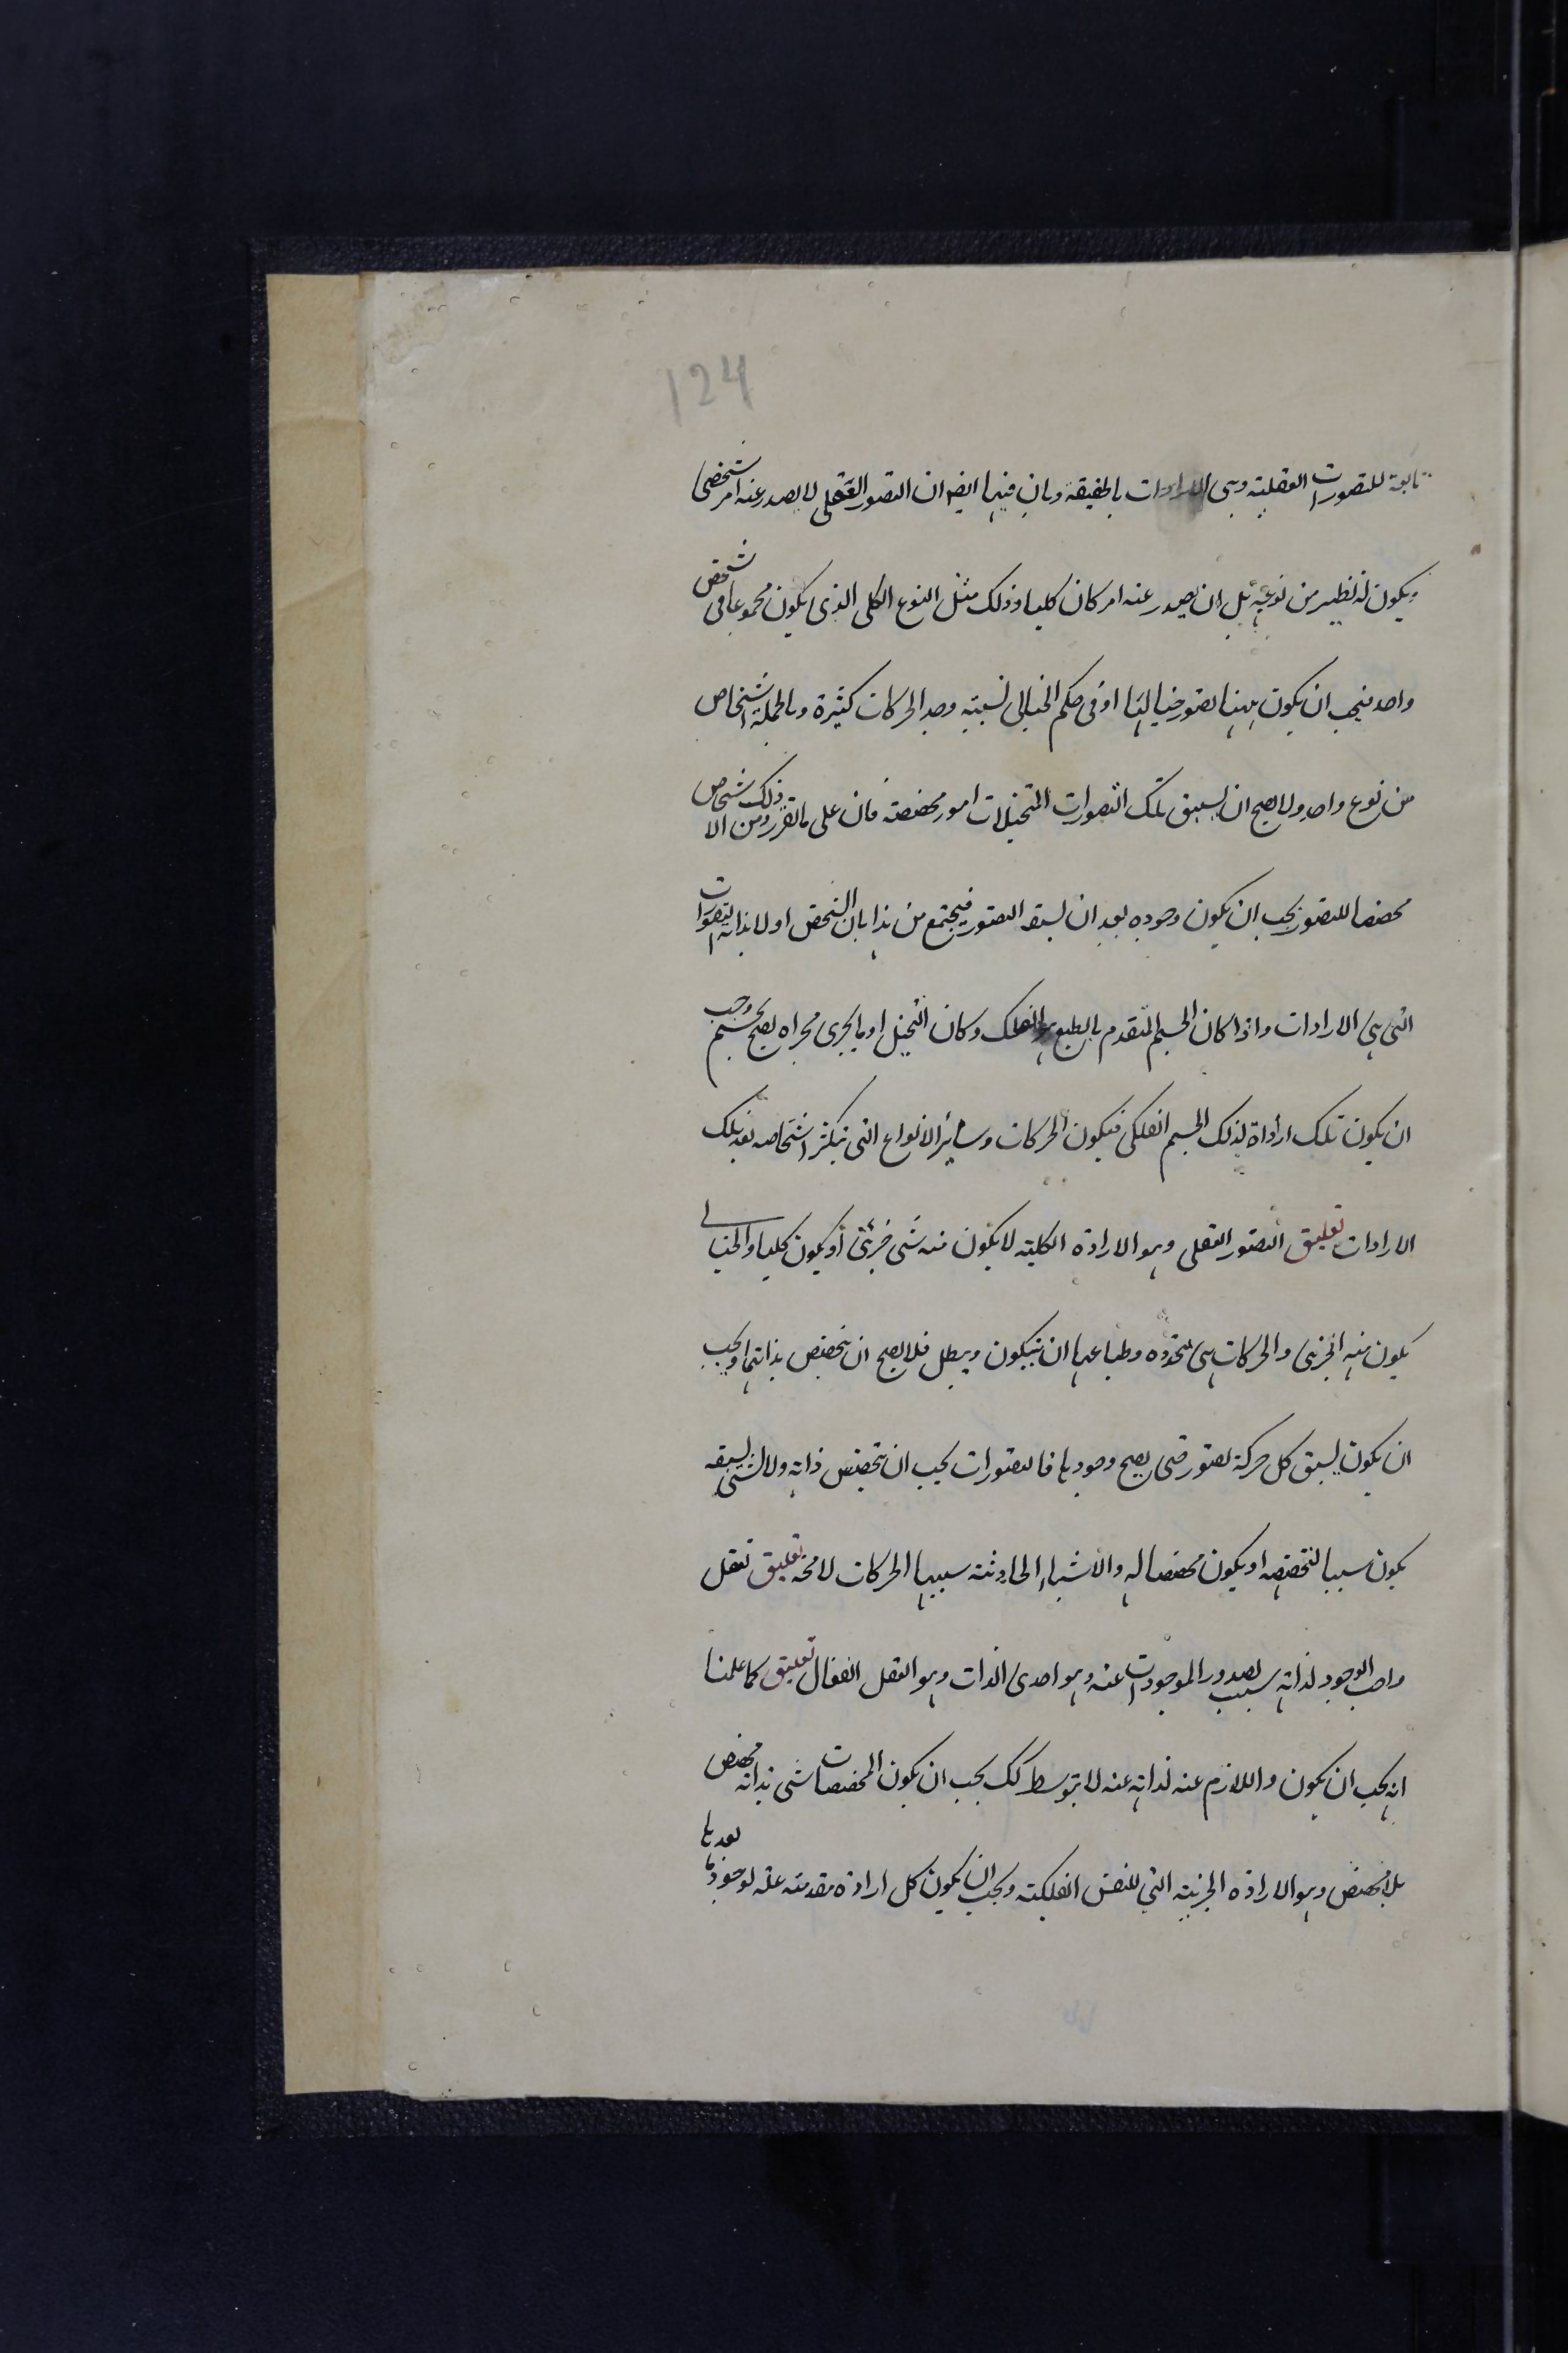 124
تابعة للتصورات العقلية وهي الارادات بالحقيقة وبان فيها ايضا ان التصور العقلي لا يصدر عنه امر شخصي
ويكون له نظير من نوعه بل ان يصدر عنه امر كان كليا وذلك مثل النوع الكلي الذي يكون مجموعا في شخص
واحد فيجب ان يكون ههنا تصور خياليا او في حكم الخيالي نسبته وجد الحركات كثيرة وبالجملة اشخاص
من نوع واحد ولا يصح ان يسبق تلك التصورات التخيلات امور مخصصة فان على ما تقرر ذلك ومن الاشخاص
مخصصا للتصور يجب ان يكون وجوده بعد ان لسبقه التصور فيجتمع من هذا بان التشخص اولا بذاته التصورات
التي هي الارادات واذا كان الجسم المتقدم بالطبع هو الفلك وكان التخيل او ما يجري مجراه يصح لجسم وجب
ان يكون تلك اراداة لذلك الجسم الفلكي فيكون الحركات وسائر الانواع التي يتكثر اشخاصه بعد تلك
الارادات تعليق التصور العقلي وهو الارادة الكلية لا يكون منه شي جزئي او يكون كليا والخيالي
يكون منه الجزئي والحركات هي متجدده وطباعها ان يتكون ويبطل فلا يصح ان يتخصص بذاتها ويجب
ان يكون يسبق كل حركة تصور حتى يصح وجودها فالتصورات يجب ان يتخصص ذاته ولا لشي يسبقه
يكون سببا لتخصصه او يكون مخصصا له والاشياء الحادثة سببها الحركات لا محه تعليق تعقل
واجب الوجود لذاته سبب لصدور الموجودات عنه وهو احدي الذات وهو العقل الفعال تعليق كما علمنا
انه يجب ان يكون واللازم عنه لذاته عنه لا بتوسط كك يجب ان يكون المخصصات شي بذاته مخصص
بلا مخصص وهو الارادة الجزئية التي للنفس الفلكية ويجب ان يكون كل ارادة متقدمة علة لوجود ما بعدها